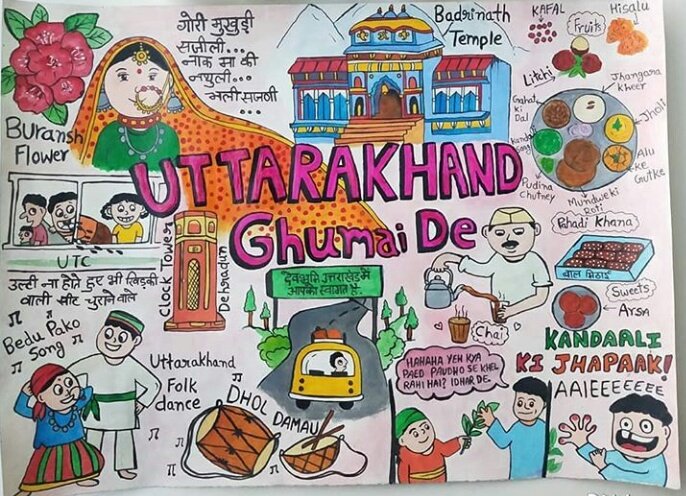 गोरी मुखुड़ी
सजीली...
नाक मा की
नथुली...
भली सजनी
Badrinath
Temple
KAFAL
Fruits
Hisalu
Litchi
Buransh
Flower
Jhangora
Kheer
Gahat
ki
Dal
Kandali
Saag
Jholi
Alu
ke
Gutke
Pudina
Chutney
Munduwe ki
Roti
Pahadi Khana
UTTARAKHAND
Ghumai De
UTC
उल्टी ना होते हुए भी खिड़की
वाली सीट चुराने वाले
Clock Tower
Dehradun
देवभूमि उत्तराखंड में
आपका स्वागत है.
Chai
बाल मिठाई
Sweets
Arsa
Bedu Pako
Song
Uttarakhand
Folk
dance
DHOL DAMAU
HAHAHA YEH KYA
PAED PAUDHO SE KHEL
RAHI HAI? IDHAR DE.
KANDAALI
KI JHAPAAK!
AAIEEEEEEE